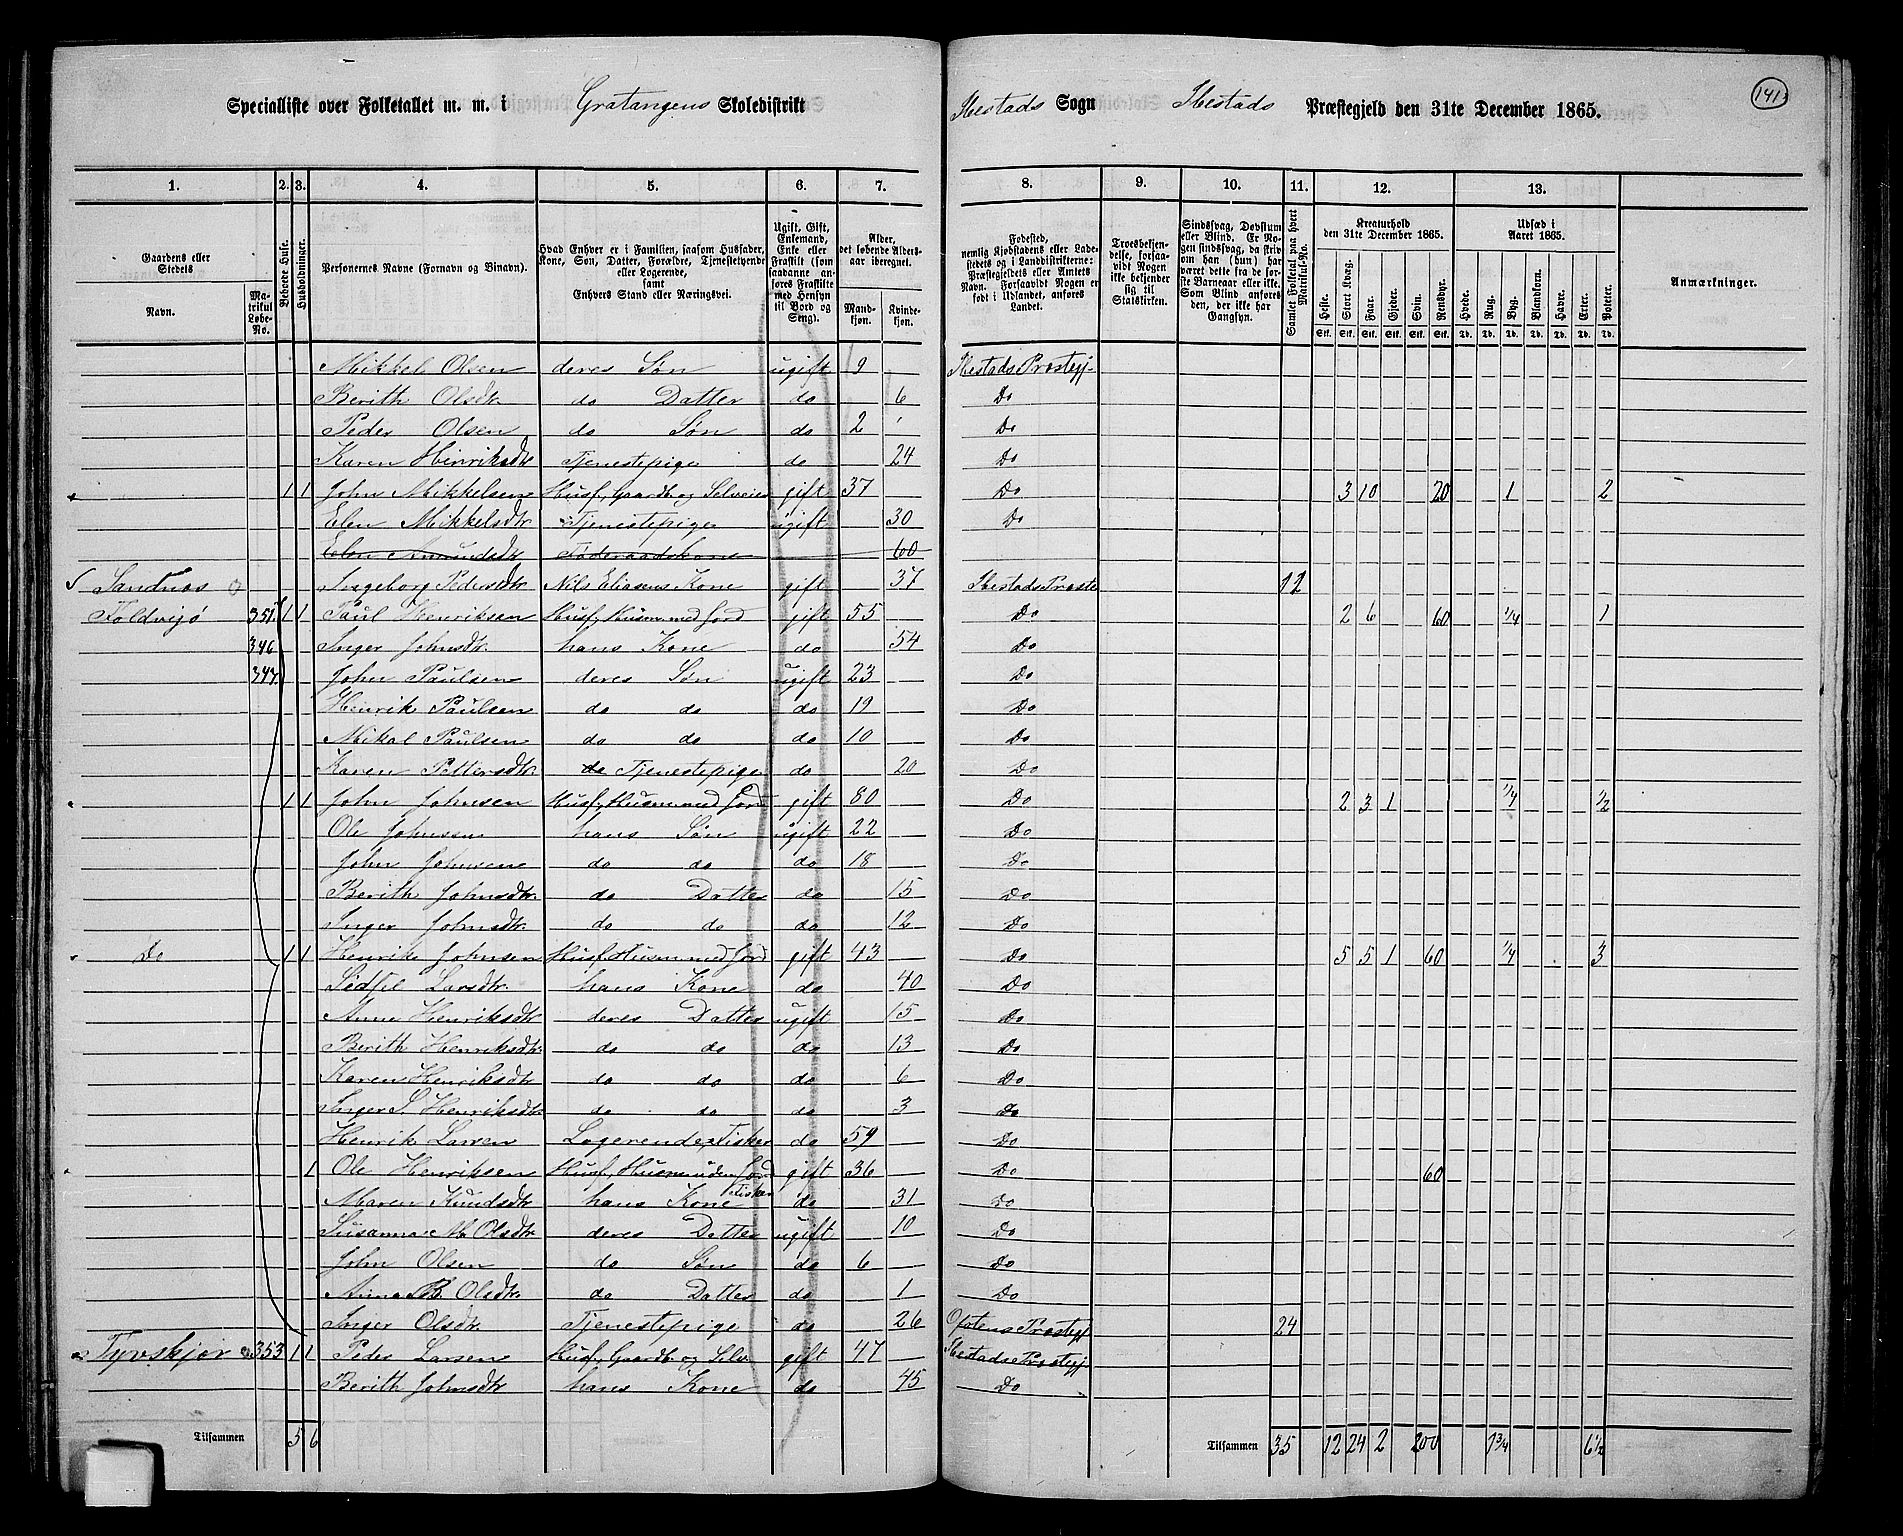 141
Specialliste over Folketallet m. m. i Gratangens Skoledistrikt Ibestads Sogn Ibestads Præstegjeld den 31te December 1865.
1. 2. 3. 4. 5. 6. 7. 8. 9. 10. 11. 12. 13.
Gaardens eller Stedets
Navn.
Matrikul Løbe-No.
Beboede Huse.
Husholdninger.
Personernes Navne (Fornavn og Binavn).
Hvad Enhver er i Familien, saasom Husfader, Kone, Søn, Datter, Forældre, Tjenestetyende eller Logerende, samt Enhvers Stand eller Næringsvei.
Ugift, Gift, Enkemand, Enke eller Fraskilt (som saadanne anføres Fraskilte med Hensyn til Bord og Seng).
Alder, det løbende Alders-aar iberegnet.
Mandkjøn. Kvindekjøn.
Fødested, nemlig Kjøbstadens eller Ladestedets og i Landdistrikterne: Præstegjeldets eller Amtets Navn. Forsaavidt Nogen er født i Udlandet, anføres Landet.
Troesbekjendelse, forsaavidt Nogen ikke bekjender sig til Statskirken.
Sindssvag, Døvstum eller Blind. Er Nogen sindssvag, da skrives om han (hun) har været dette fra de første Barneaar eller ikke. Som Blind anføres den, der ikke har Gangsyn.
Samlet Folketal paa hvert Matrikul-No.
Kreaturhold den 31te December 1865.
Heste. Stort Kvæg. Faar. Gjeder. Svin. Rensdyr.
Udsæd i Aaret 1865.
Hvede. Rug. Byg. Blandkorn. Havre. Erter. Poteter.
Anmærkninger.
Mikkel Olsen deres Søn ugift 9 Ibestads Præstegj.
Berith Olsdtr. do Datter do 6 Do
Peder Olsen do Søn do 2 Do
Karen Henriksdtr Tjenestepige do 24 Do
1 1 John Mikkelsen Husf, Gaardb og Selveier gift 37 Do 3 10 20 1 2
Elen Mikkelsdtr Tjenestepige ugift 30 Do
Elen Amundsdtr Føderaadskone 60
Sandnæs Ingeborg Pedersdtr Nils Eliasens Kone gift 37 Ibestads Præste 12
Foldvigø 351 1 1 Paul Henriksen Husf, Husm. med Jord gift 55 Do 2 6 60 1/4 1
346 Inger Johnsdtr. hans Kone do 54 Do
347 John Paulsen deres Søn ugift 23 Do
Henrik Paulsen do do do 19 Do
Mikal Paulsen do do do 10 Do
Karen Pettersdtr. do Tjenestepige do 20 Do
1 1 John Johnsen Husf, Husm. med Jord gift 80 Do 2 3 1 1/4 1/2
Ole Johnsen hans Søn ugift 22 Do
John Johnsen do do do 18 Do
Berith Johnsdtr. do Datter do 15 Do
Inger Johnsdtr. do do do 12 Do
Do 1 1 Henrik Johnsen Husf. Husm med Jord gift 43 Do 5 5 1 60 1/4 3
Larsdtr. hans Kone do 40 Do
Anne Henriksdtr deres Datter ugift 15 Do
Berith Henriksdtr. do do do 13 Do
Karen Henriksdtr do do do 6 Do
Inger S. Henriksdtr. do do do 3 Do
Henrik Larsen Logerende, Fisker do 59 Do
1 Ole Henriksen Husf, Husm uden Jord Fisker gift 36 Do 60
Maren Knudsdtr hans Kone do 31 Do
Susanna M. Olsdtr. deres Datter ugift 10 Do
John Olsen do Søn do 6 Do
Anna B. Olsdtr. do Datter do 1 Do
Inger Olsdtr. Tjenestepige do 26 Ofotens Præstegj 24
Tyvskjær 353 1 1 Peder Larsen Husf, Gaardb og Selv. gift 47 Ibestads Præstegj
Berith Johnsdtr hans Kone do 45 Do
Tilsammen 5 6 Tilsammen 35 12 24 2 200 1 3/4 6 1/2